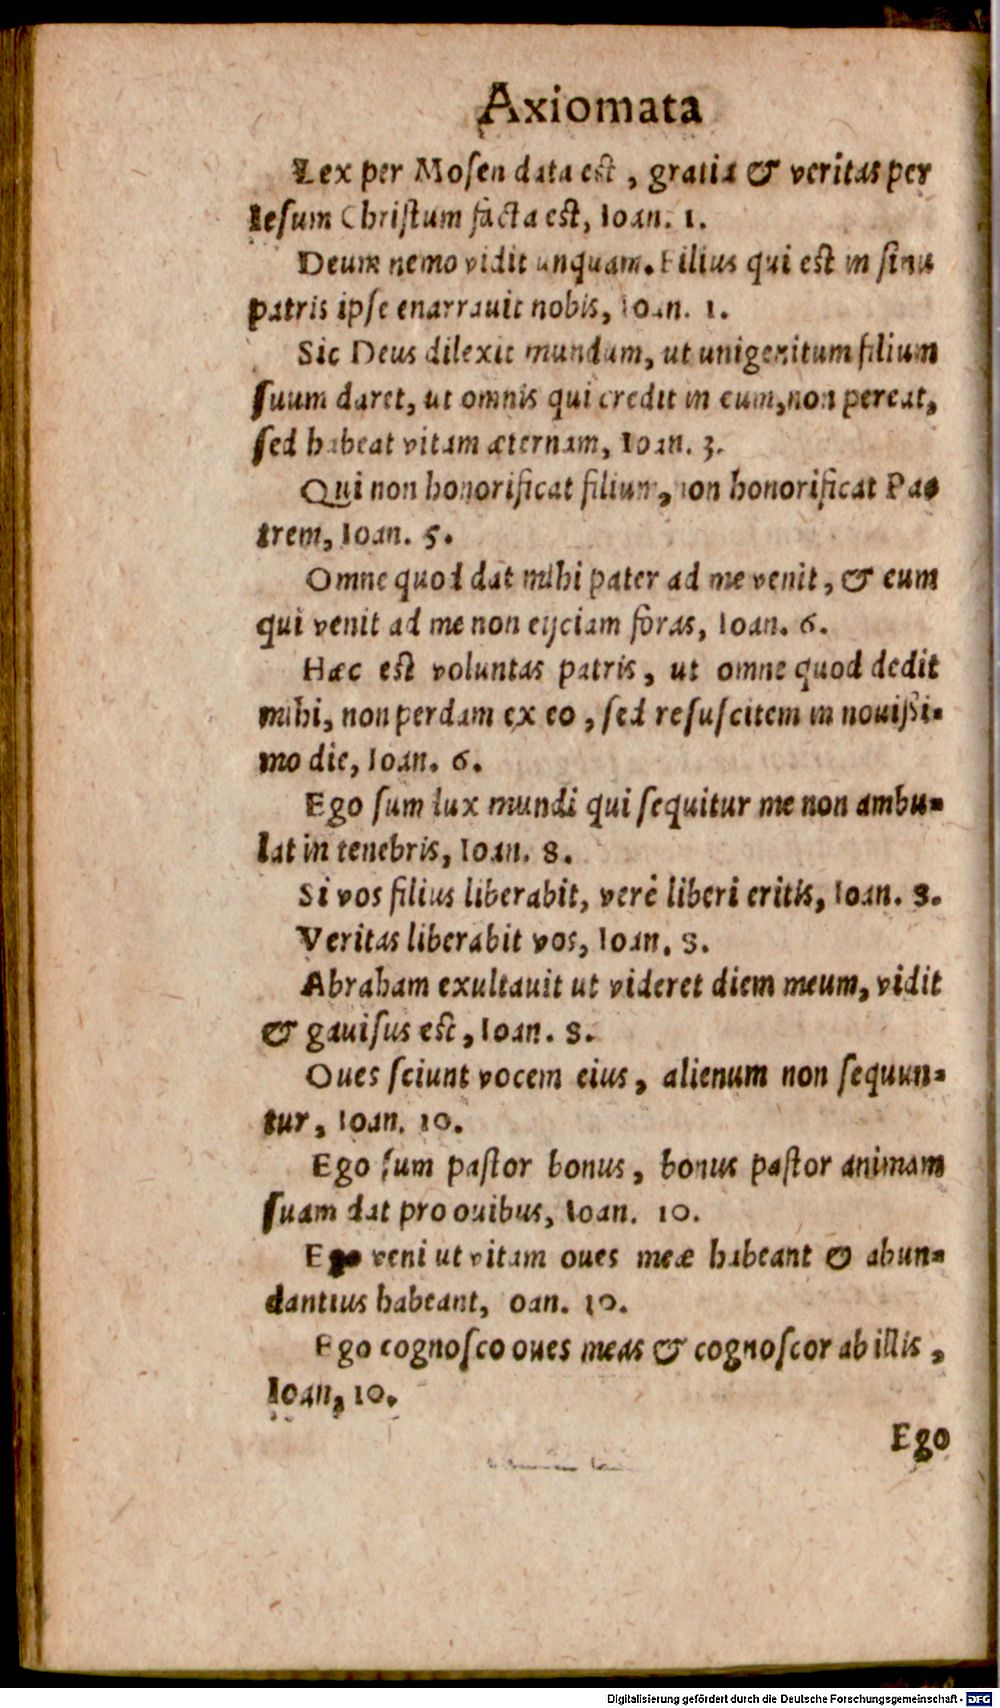 Axiomata
Lex per Mosen data est, gratia & veritas per
Iesum Christum facta est, Ioan. 1.
Deum nemo vidit unquam. Filius qui est in sinu
patris ipse enarravit nobis, Ioan. 1.
Sic Deus dilexit mundum, ut unigenitum filium
suum daret, ut omnis qui credit in eum, non pereat,
sed habeat vitam æternam, Ioan. 3.
Qui non honorificat filium, non honorificat Pa-
trem, Ioan. 5.
Omne quod dat mihi pater ad me venit, & eum
qui venit ad me non eijciam foras, Ioan. 6.
Hæc est voluntas patris, ut omne quod dedit
mihi, non perdam ex eo, sed resuscitem in nouißi-
mo die, Ioan. 6.
Ego sum lux mundi qui sequitur me non ambu-
lat in tenebris, Ioan. 8.
Si vos filius liberabit, verè liberi eritis, Ioan. 8.
Veritas liberabit vos, Ioan. 8.
Abraham exultauit ut videret diem meum, vidit
& gauisus est, Ioan. 8.
Oues sciunt vocem eius, alienum non sequun-
tur, Ioan. 10.
Ego sum pastor bonus, bonus pastor animam
suam dat pro ouibus, Ioan. 10.
Ego veni ut vitam oues meæ habeant & abun-
dantius habeant, oan. 10.
Ego cognosco oues meas & cognoscor ab illis,
Ioan, 10.
Ego
Digitalisierung gefördert durch die Deutsche Forschungsgemeinschaft - DFG